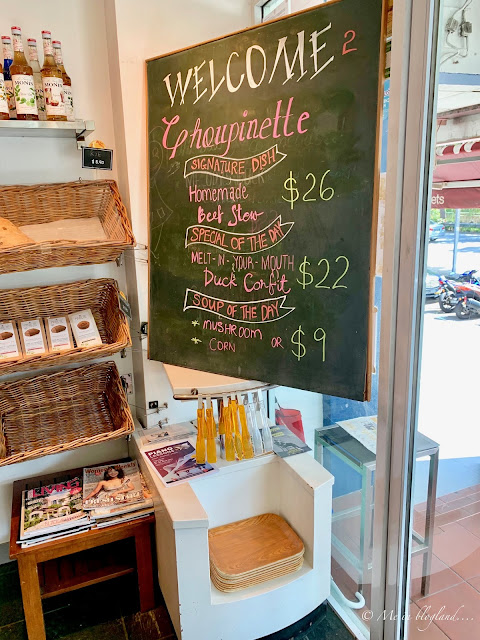 WELCOME 2
Choupinette
SIGNATURE DISH
Homemade
Beef Stew
$26
SPECIAL OF THE DAY
MELT-IN-YOUR-MOUTH
Duck Confit
$22
SOUP OF THE DAY
* MUSHROOM
* CORN OR
$9
MONIN
MONIN
PIANO
ets
© Me in blogland....